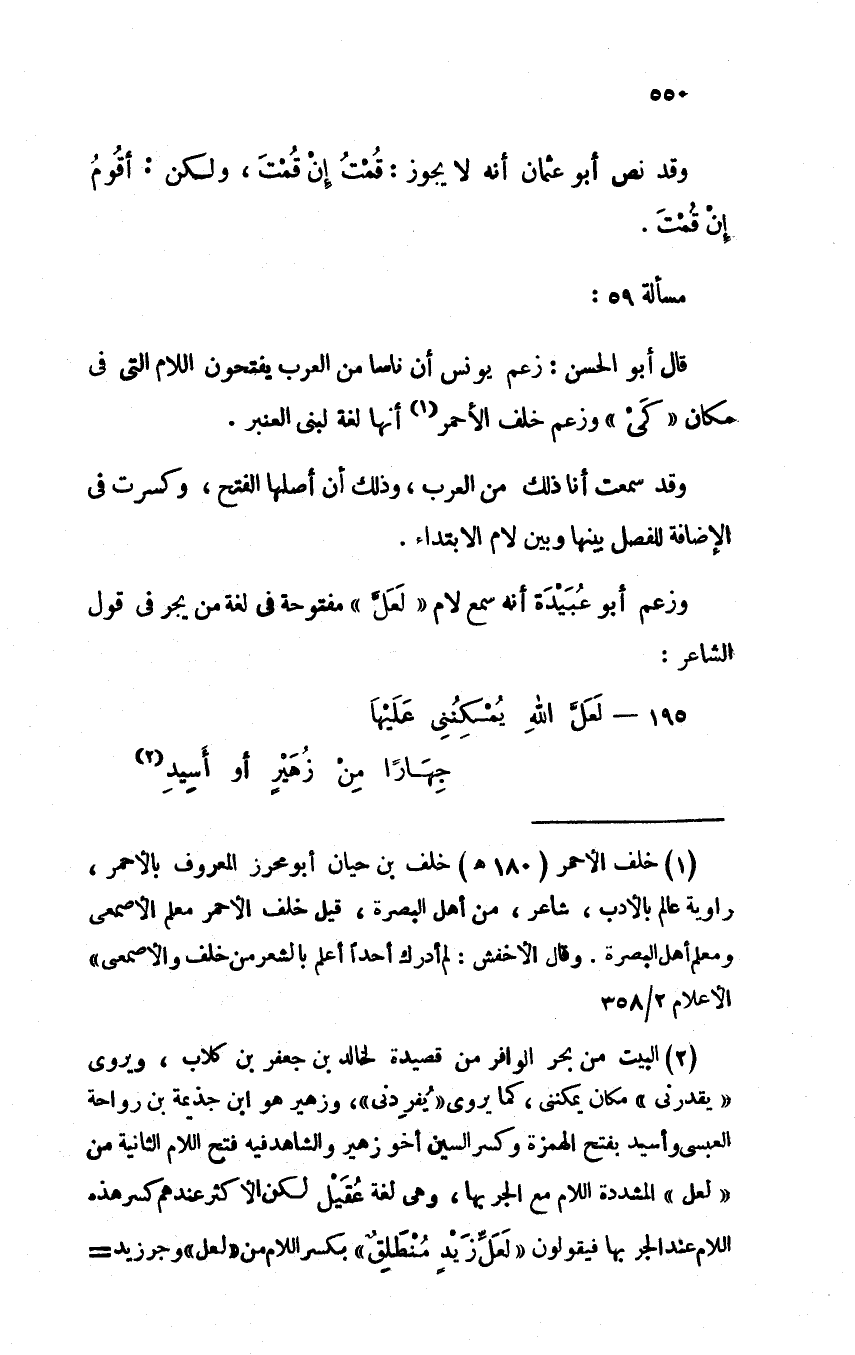 ٥٥٠
وقد نص أبو عثمان أنه لا يجوز : قُمْتُ إِنْ قُمْتَ ، ولكن : أقُومُ
إِنْ قُمْتَ .
مسألة ٥٩ :
قال أبو الحسن : زعم يونس أن ناسا من العرب يفتحون اللام التى فى
مكان « كَىْ » وزعم خلف الأحمر(١) أنها لغة لبنى العنبر .
وقد سمعت أنا ذلك من العرب ، وذلك أن أصلها الفتح ، وكسرت فى
الإضافة للفصل بينها وبين لام الابتداء .
وزعم أبو عُبَيْدَة أنه سمع لام « لَعَلَّ » مفتوحة فى لغة من يجر فى قول
الشاعر :
١٩٥ — لَعَلَّ اللهِ يُمْسِكِنُنِى عَلَيْهَا
جِهَارًا مِنْ زُهَيْرٍ أو أَسِيدِ(٢)
(١) خلف الأحمر ( ١٨٠ ه ) خلف بن حيان أبو محرز المعروف بالأحمر ،
راوية عالم بالأدب ، شاعر ، من أهل البصرة ، قيل خلف الأحمر معلم الأصمعى
ومعلم أهل البصرة . وقال الأخفش : لم أدرك أحداً أعلم بالشعر من خلف والأصمعى»
الأعلام ٣٥٨/٢
(٢) البيت من بحر الوافر من قصيدة لخالد بن جعفر بن كلاب ، ويروى
« يقدرنى » مكان يمكننى ، كما يروى «يُفردنى»، وزهير هو ابن جذيمة بن رواحة
العبسى وأسيد بفتح الهمزة وكسر السين أخو زهير والشاهد فيه فتح اللام الثانية من
« لعل » المشددة اللام مع الجر بها ، وهى لغة عُقَيْل لكن الأكثر عندهم كسر هذه
اللام عند الجر بها فيقولون « لَعَلِّ زَيْدٍ مُنْطَلِقٌ » بكسر اللام من «لعل» وجر زيد =